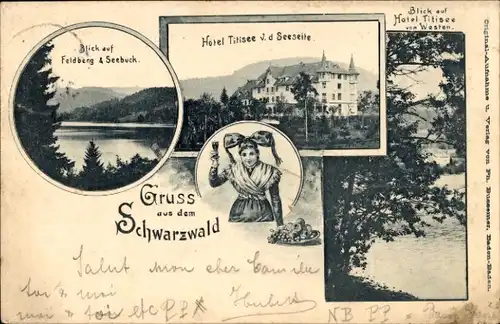 Blick auf
Feldberg & Seebuck.
Hotel Titisee v. d Seeseite
Blick auf
Hotel Titisee
von Westen.
Gruss
aus dem
Schwarzwald
Original-Aufnahme u. Verlag von Ph. Bussemer, Baden-Baden.
Salut mon cher Camille
toi & moi
moi & toi etc
NB